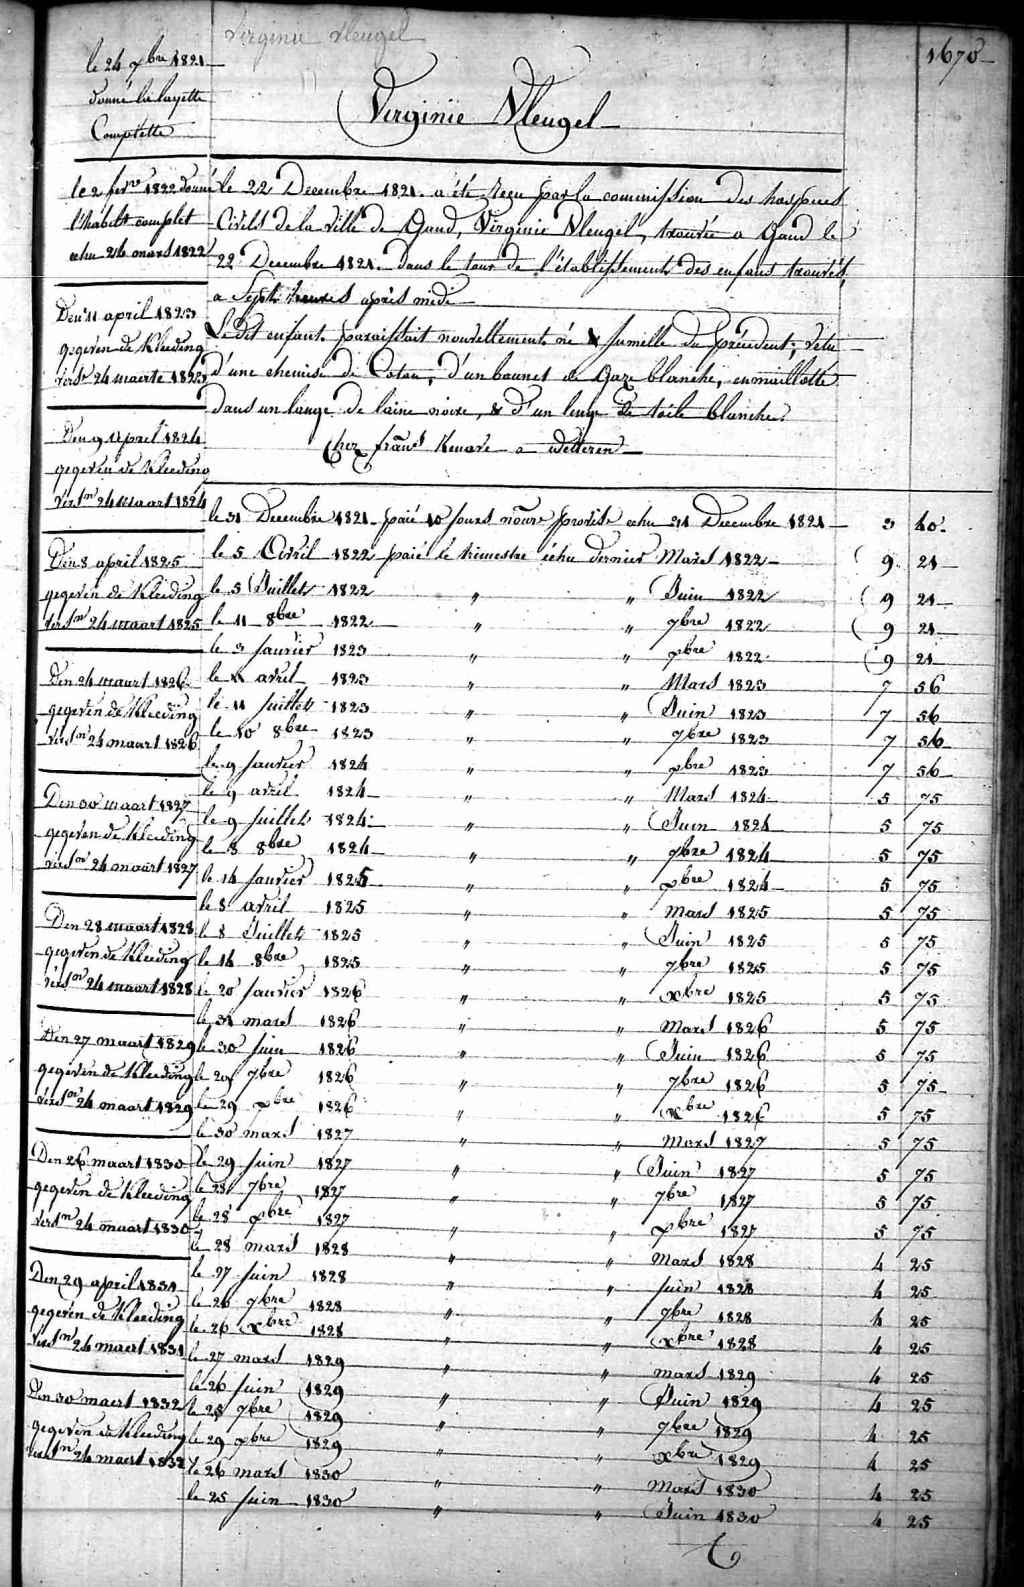 Virginie Vleugel
1670
le 24 xbre 1821
donné la layette
Complette
Virginie Vleugel
le 2 fevr 1822 donné
l'habilt complet
echu 24 mars 1822
Den 11 april 1823
gegeven de Kleeding
verst 24 maerte 1823
Den 9 April 1824
gegeven de Kleeding
versn 24 maart 1824
Den 8 april 1825
gegeven de Kleeding
versn 24 maart 1825
Den 24 maart 1826
gegeven de Kleeding
versn 24 maart 1826
Den 30 maart 1827
gegeven de Kleeding
versn 24 maart 1827
Den 28 maart 1828
gegeven de Kleeding
versn 24 maart 1828
Den 27 maart 1829
gegeven de Kleeding
versn 24 maart 1829
Den 26 maart 1830
gegeven de Kleeding
versn 24 maart 1830
Den 29 april 1831
gegeven de Kleeding
versn 24 maert 1831
Den 30 maert 1832
gegeven de Kleeding
versn 24 maert 1832
Le 22 Decembre 1821. a été reçu par la commission des hospices
Civils de la ville de Gand, Virginie Vleugel, trouvée a Gand le
22 Decembre 1821. dans le tour de l'établissement des enfans trouvés,
a Sept heures après midi
Le dit enfant paraissait nouvellement né & jumelle du précedent; vétu
d'une chemise de Coton, d'un bonnet de Gaze blanche, emmaillotté
dans un lange de laine noire, & d'un lange de toile blanche.
Chez frans Kenare a Wetteren
le 31 Decembre 1821 paié 10 jours nourre provise echu 31 Decembre 1821 3 40
le 5 Avril 1822 paié le trimestre échu dernier Mars 1822 9 21
le 5 Juillet 1822 " " Juin 1822 9 21
le 11 8bre 1822 " " 7bre 1822 9 21
le 3 janvier 1823 " " xbre 1822 9 21
le 11 avril 1823 " " Mars 1823 7 56
le 11 juillet 1823 " " Juin 1823 7 56
le 10 8bre 1823 " " 7bre 1823 7 56
le 9 janvier 1824 " " xbre 1823 7 56
le 9 avril 1824 " " Mars 1824 5 75
le 9 juillet 1824 " " Juin 1824 5 75
le 8 8bre 1824 " " 7bre 1824 5 75
le 14 janvier 1825 " " xbre 1824 5 75
le 8 avril 1825 " " Mars 1825 5 75
le 8 Juillet 1825 " " Juin 1825 5 75
le 14 8bre 1825 " " 7bre 1825 5 75
le 20 janvier 1826 " " xbre 1825 5 75
le 31 mars 1826 " " Mars 1826 5 75
le 30 juin 1826 " " Juin 1826 5 75
le 29 7bre 1826 " " 7bre 1826 5 75
le 29 xbre 1826 " " xbre 1826 5 75
le 30 mars 1827 " " Mars 1827 5 75
le 29 juin 1827 " " Juin 1827 5 75
le 28 7bre 1827 " " 7bre 1827 5 75
le 28 xbre 1827 " " xbre 1827 5 75
le 28 mars 1828 " " Mars 1828 4 25
le 27 juin 1828 " " juin 1828 4 25
le 26 7bre 1828 " " 7bre 1828 4 25
le 26 xbre 1828 " " xbre 1828 4 25
le 27 mars 1829 " " mars 1829 4 25
le 26 juin 1829 " " Juin 1829 4 25
le 25 7bre 1829 " " 7bre 1829 4 25
le 29 xbre 1829 " " xbre 1829 4 25
le 26 mars 1830 " " Mars 1830 4 25
le 25 juin 1830 " " Juin 1830 4 25